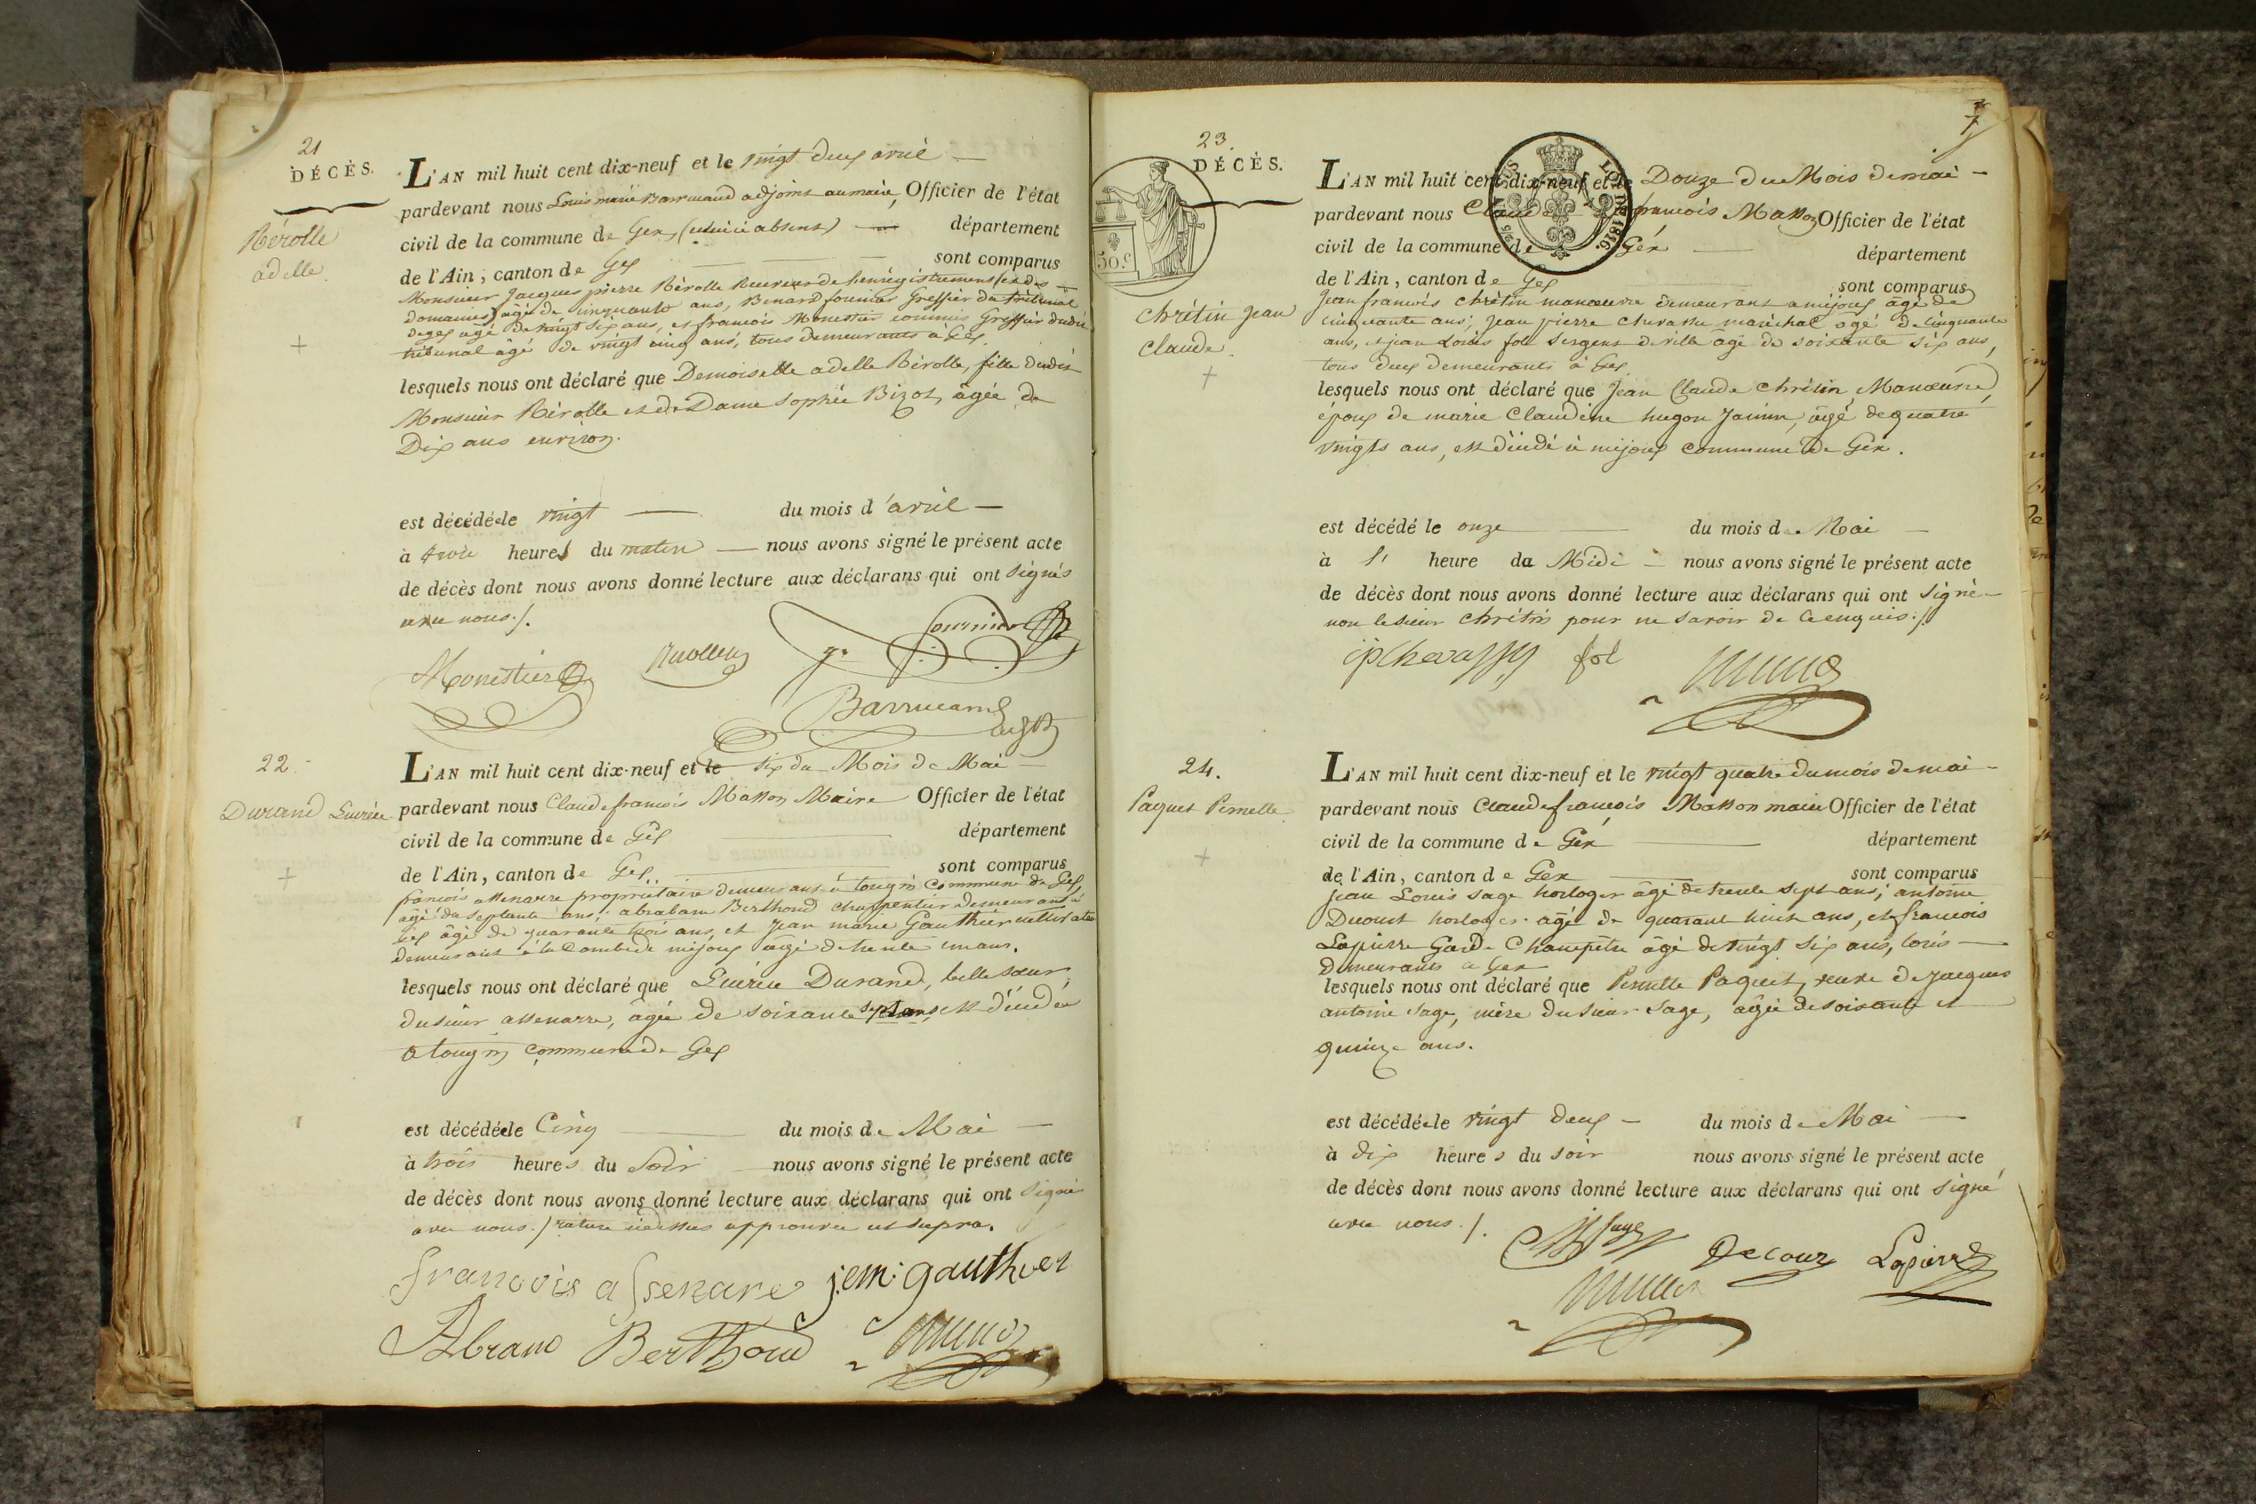 21
DÉCÈS.
Rérolle
adelle
L'AN mil huit cent dix-neuf et le vingt deux avril
pardevant nous Louis marie Barrucand adjoint au maire, Officier de l'état
civil de la commune de Gex, (celui ci absent) département
de l'Ain, canton de Gex sont comparus
Monsieur Jacques pierre Rérolle Receveur de l'enrégistrement (et des
domaines) âgé de cinquante ans, Benard fournier Greffier du tribunal
de gex agé de vingt six ans, et francois Monestier commis Greffier dudit
tribunal âgé de vingt cinq ans, tous demeurants à Gex.
lesquels nous ont déclaré que Demoiselle adelle Rérolle, fille dudit
Monsieur Rérolle et de Dame Sophie Bizot, âgée de
Dix ans environ.
est décédée le vingt du mois d'avril
à trois heures du matin nous avons signé le présent acte
de décès dont nous avons donné lecture aux déclarans qui ont signés
avec nous /.
Monestier Rerolle fournier
Barrucand
22
Durand
L'AN mil huit cent dix-neuf et le six du Mois de Mai
pardevant nous Claude francois Masson Maire Officier de l'état
civil de la commune de Gex département
de l'Ain, canton de Gex. sont comparus
francois assenare propriétaire demeurant à tougin Commune de Gex,
âgé de septante ans; abraham Berthoud charpentier demeurant à
Gex âgé de quarante trois ans, et Jean marie Gauthier cultivateur
demeurant à la Combe de mijoux âgé de trente un ans.
lesquels nous ont déclaré que Durand, belle sœur
du sieur assenare, âgée de soixante sept ans, est décédée
a tougin commune de Gex
est décédée le Cinq du mois de Mai
à trois heures du Soir nous avons signé le présent acte
de décès dont nous avons donné lecture aux déclarans qui ont signé
avec nous / rature cidessus approuvée ut supra.
francois assenare j. m. gauthier
Abram Berthoud
23.
DÉCÈS.
50.c
LOI DE 1816.
7
chrétin jean
claude.
L'AN mil huit cent dix-neuf et le Douze du Mois de mai
pardevant nous Claude francois Masson Officier de l'état
civil de la commune de Gex département
de l'Ain, canton de Gex sont comparus
Jean francois chrétin manœuvre demeurant a mijoux âgé de
cinquante ans; Jean pierre chevassu maréchal agé de cinquante
ans, et jean Louis fol Sergent de ville âgé de soixante six ans,
tous deux demeurants à Gex.
lesquels nous ont déclaré que Jean Claude chrétin, Manœuvre,
époux de marie Claudine hugon Jannin, âgé de quatre
vingts ans, est décédé à mijoux commune de Gex.
est décédé le onze du mois de Mai
à heure de Midi nous avons signé le présent acte
de décès dont nous avons donné lecture aux déclarans qui ont signé
non le sieur chrétin pour ne savoir de ce enquis./.
jp Chevassu fol
24.
Paquet Pernette
L'AN mil huit cent dix-neuf et le vingt quatre du mois de mai
pardevant nous Claude françois Masson maire Officier de l'état
civil de la commune de Gex département
de l'Ain, canton de Gex sont comparus
Jean Louis Sage horloger âgé de trente sept ans; antoine
Ducourt horloger âgé de quarante huit ans, et francois
Lapierre Garde Champêtre âgé de vingt six ans, tous
demeurants a Gex
lesquels nous ont déclaré que Pernette Paquet, veuve de Jacques
antoine Sage, mère du sieur Sage, âgée de soixante et
quinze ans.
est décédée le vingt deux du mois de Mai
à dix heures du soir nous avons signé le présent acte
de décès dont nous avons donné lecture aux déclarans qui ont signé
avec nous /.
Sage Decour Lapierre